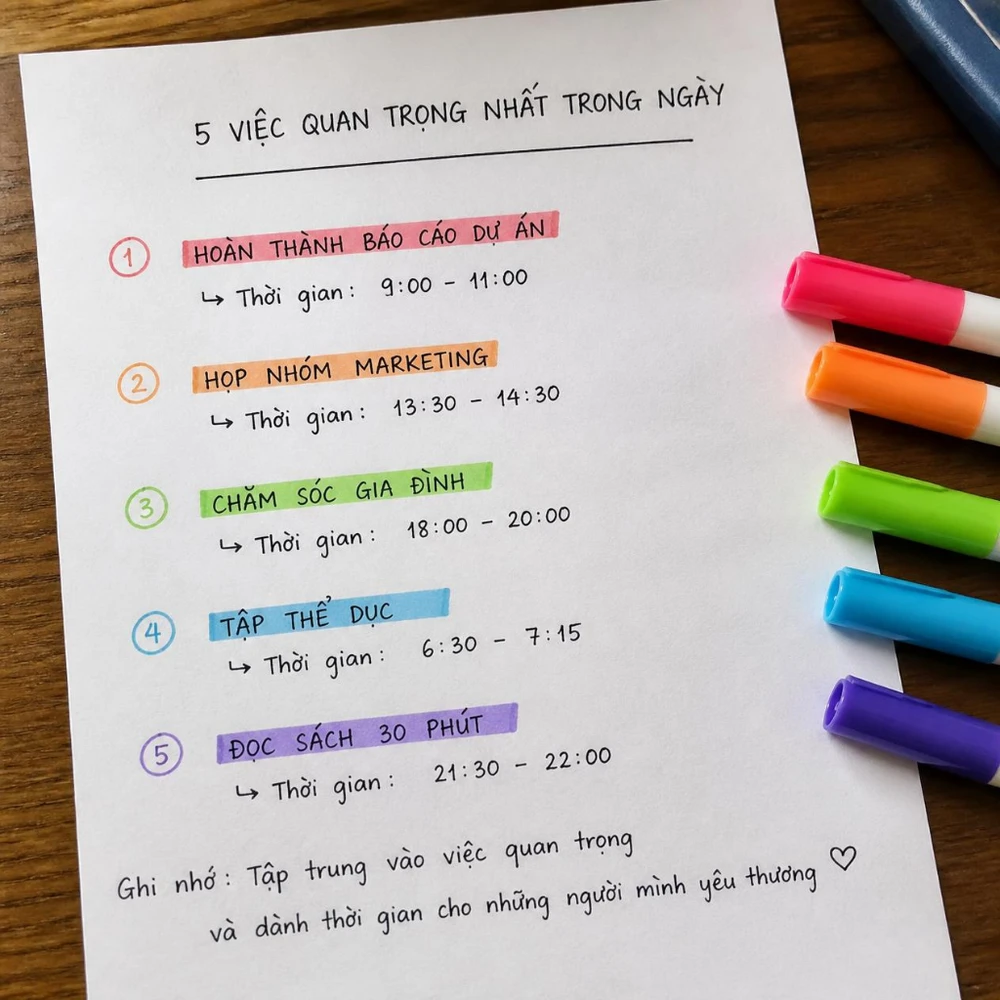 5 VIỆC QUAN TRỌNG NHẤT TRONG NGÀY
1 HOÀN THÀNH BÁO CÁO DỰ ÁN
↳ Thời gian: 9:00 - 11:00
2 HỌP NHÓM MARKETING
↳ Thời gian: 13:30 - 14:30
3 CHĂM SÓC GIA ĐÌNH
↳ Thời gian: 18:00 - 20:00
4 TẬP THỂ DỤC
↳ Thời gian: 6:30 - 7:15
5 ĐỌC SÁCH 30 PHÚT
↳ Thời gian: 21:30 - 22:00
Ghi nhớ: Tập trung vào việc quan trọng
và dành thời gian cho những người mình yêu thương ♡